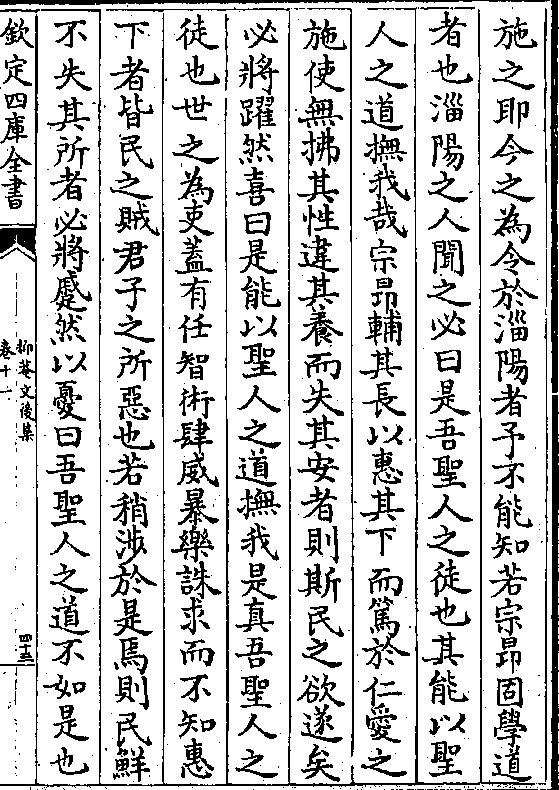 施之即今之為令於淄陽者予不能知若宗昂固學道
者也淄陽之人聞之必曰是吾聖人之徒也其能以聖
人之道撫我哉宗昂輔其長以惠其下而篤於仁愛之
施使無拂其性違其養而失其安者則斯民之欲遂矣
必將躍然喜曰是能以聖人之道撫我是真吾聖人之
徒也世之為吏蓋有任智術肆威暴樂誅求而不知惠
下者皆民之賊君子之所惡也若稍涉於是焉則民鮮
不失其所者必將蹙然以憂曰吾聖人之道不如是也
欽定四庫全書
抑菴文後集
卷十一
四十三